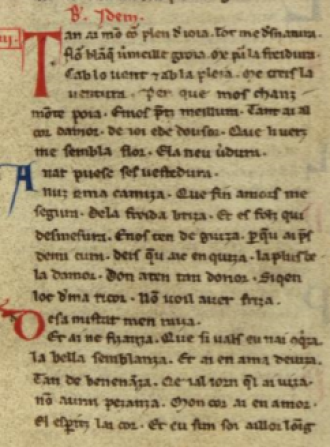 B. Idem.
Tan ai mō cō plen d'ioia. Tot me desnatura.
flor blāq̄ uermeille groia. ox par la freidura
Cab lo uent ⁊ ab la ploia. me creis la
uentura. Per que mos chanz
mōte poia. E mos prez meillura. Tant ai al
cor damor. de ioi e de dousor. Que liuerz
me sembla flor. E la neu uerdura.
Anar puesc ses uestedura.
nuz e ma camiza. Que fin amors me
segura. De la freida briza. Et es fols qui
desmesura. E nos ten de guiza. p qu ai ps
de mi cura. deis qu aic enquiza. la plus be
la damor. Don aten tan donor. Si qen
loc de ma ricor. Nō uoil auer friza.
De sa mistat men raiza.
Et ai ne fianza. Que si uals eu nai
la bella semblanza. Et ai en a ma deuiza.
Tan de benenāza. Qe ial iorn qi ai uiza
nō aurai pezanza. Mon cor ai en amor.
El esperiz lai cor. Et eu sim soi aillor loing